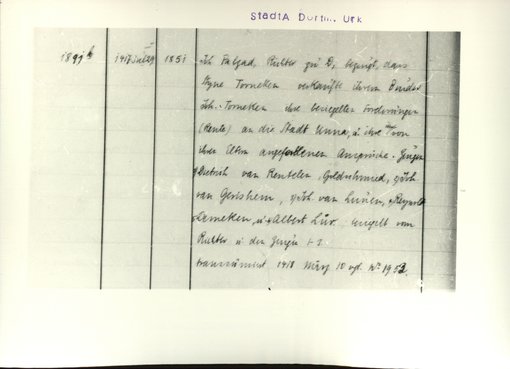 StadtA Dortm. Urk
1891 b 1417 1851 Joh Richter zu D. bezeugt, dass
Styne Torneken verkaufte ihrem Bruder
Joh. Torneken ihre besiegelten Forderungen
(Rente) an die Stadt Unna, u ihre von
ihren Eltern angefallenen Ansprüche. Zeugen
Dietrich van Rentelen, Goldschmied, Joh.
van Gershem, Joh. van Lünen, Reynolt
Lemeken, u Albert Lür. siegelt vom
Richter u den Zeugen 1-3
transsumiert 1418 März 10 vgl. No 1952.